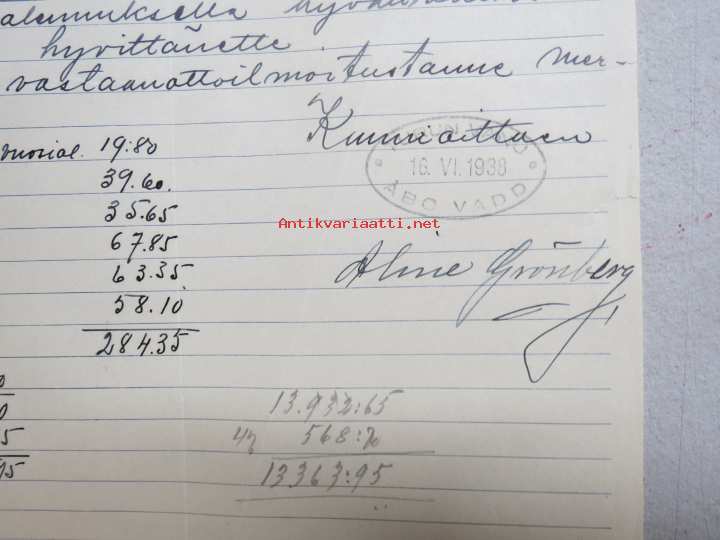 alennuksella
hyvittänette.
vastaanottoilmoitustanne mer-
Kunnioittaen
vuosial. 19:80
39.60.
35.65
67.85
63.35
58.10
284.35
TURUN
16. VI. 1938
ÅBO VADD
Antikvariaatti.net
Aline Grönberg
13.932:65
568:70
13363:95
0
0
5
15